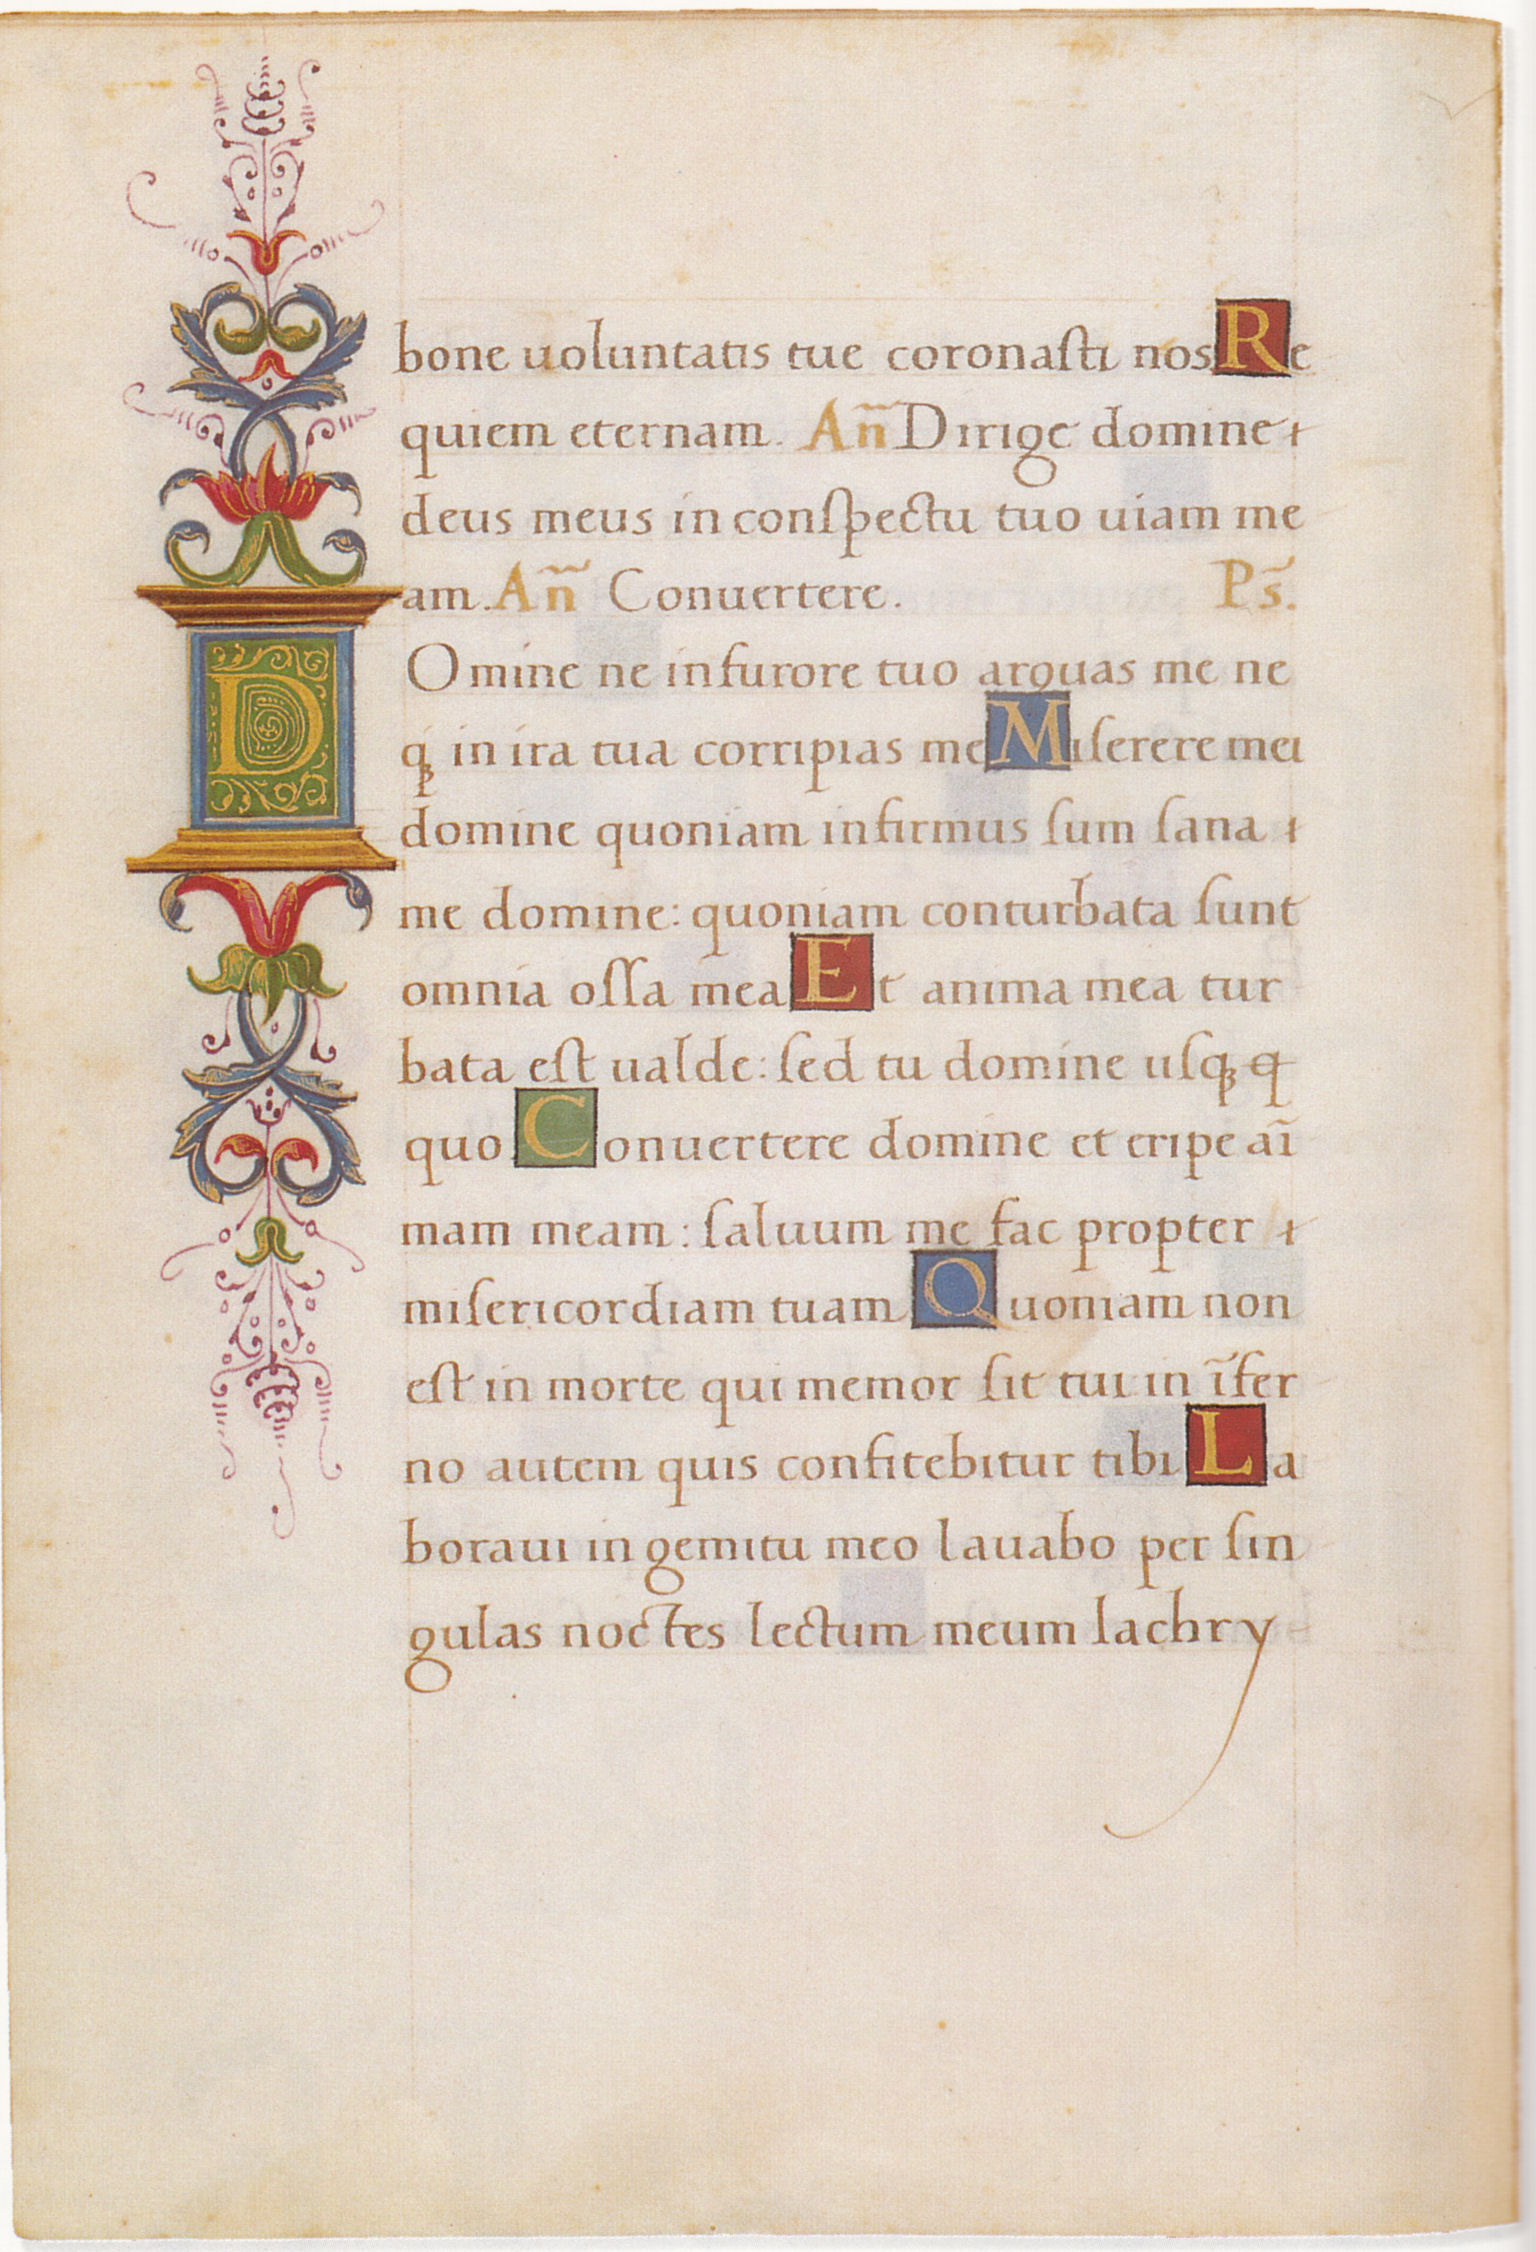 bone uoluntatis tue coronaſti nos Re
quiem eternam. An̄ Dirige domine
deus meus in conſpectu tuo uiam me
am. An̄ Conuertere. Ps̄.
DOmine ne in furore tuo arguas me ne
qꝫ in ira tua corripias me Miſerere mei
domine quoniam infirmus ſum ſana
me domine: quoniam conturbata ſunt
omnia oſſa mea Et anima mea tur
bata eſt ualde: ſed tu domine uſqꝫ ꝗ
quo Conuertere domine et eripe aī
mam meam: ſaluum me fac propter
miſericordiam tuam Quoniam non
eſt in morte qui memor ſit tui: in īfer
no autem quis confitebitur tibi La
boraui in gemitu meo lauabo per ſin
gulas noctes lectum meum lachry